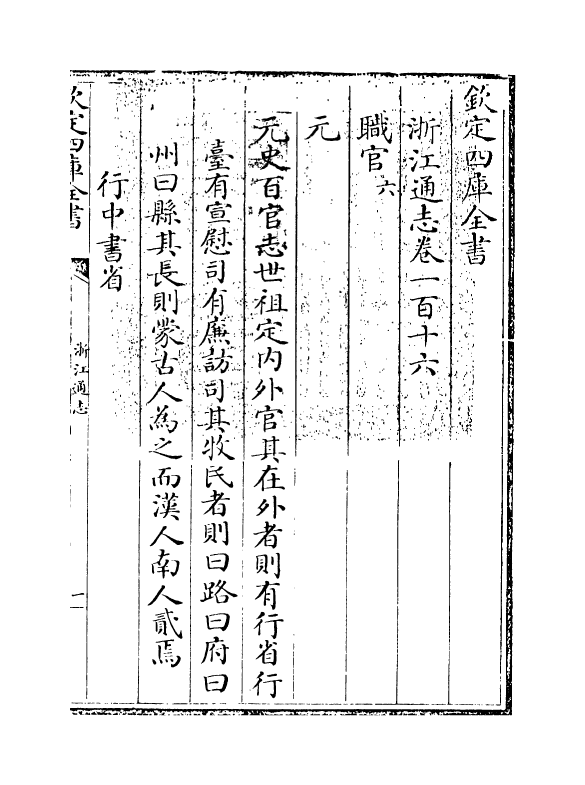 欽定四庫全書
浙江通志卷一百十六
職官六
元
元史百官志世祖定内外官其在外者則有行省行
臺有宣慰司有廉訪司其牧民者則曰路曰府曰
州曰縣其長則蒙古人為之而漢人南人貳焉
行中書省
欽定四庫全書
浙江通志
一